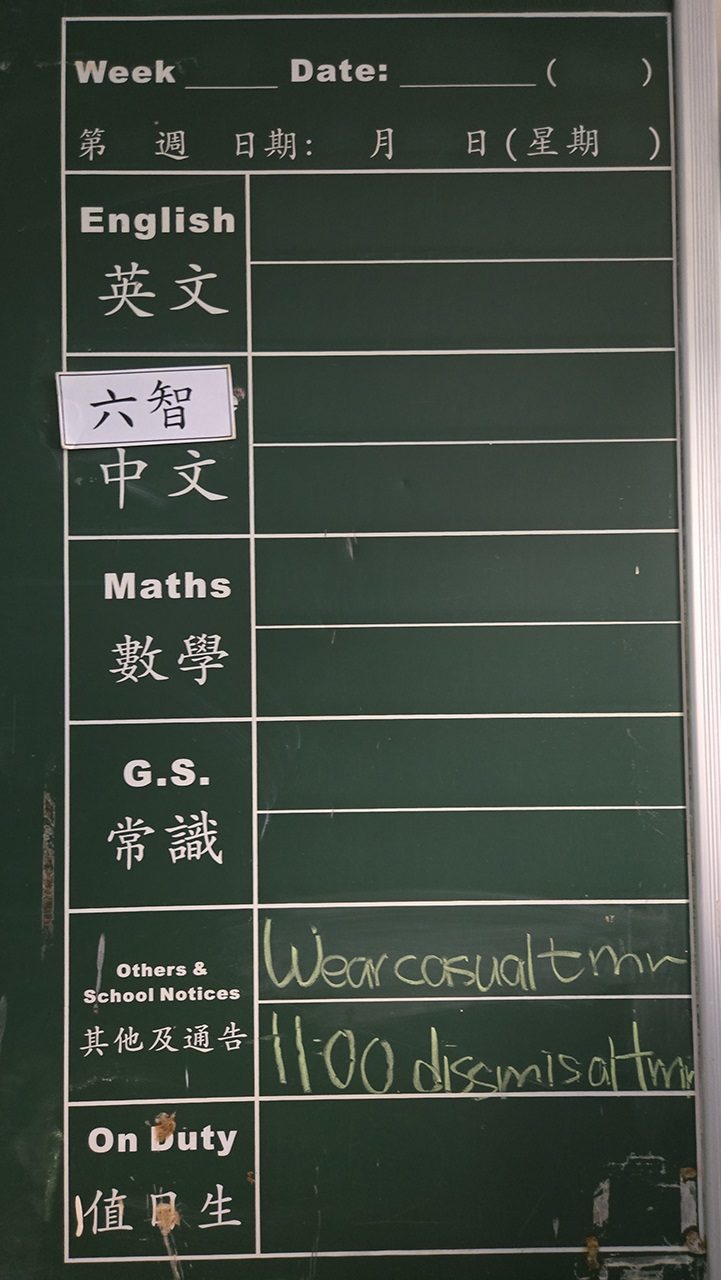 Week _____ Date: ________ ( )
第 週 日期: 月 日(星期 )
English
英文
六智
中文
Maths
數學
G.S.
常識
Others &
School Notices
其他及通告
Wear casual tmr
11:00 dissmisal tmr
On Duty
值日生